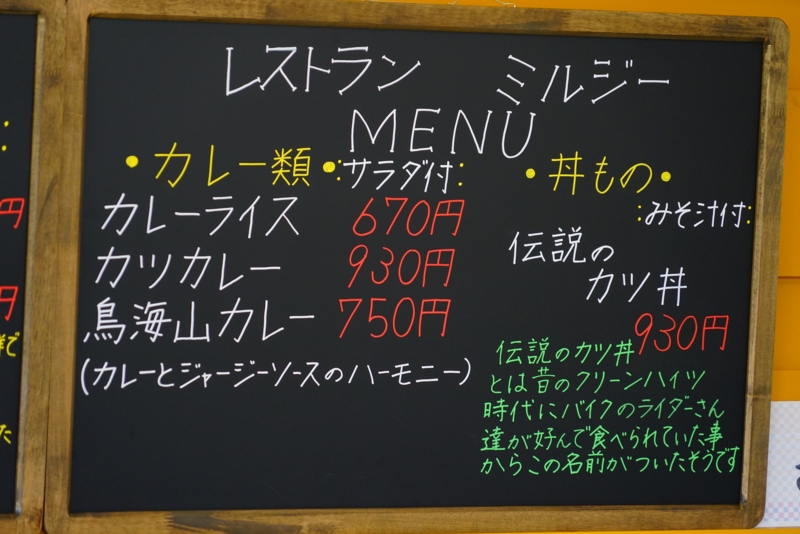 レストラン ミルジー
MENU
・カレー類・:サラダ付:
カレーライス 670円
カツカレー 930円
鳥海山カレー 750円
(カレーとジャージーソースのハーモニー)
・丼もの・
:みそ汁付:
伝説の
カツ丼
930円
伝説のカツ丼
とは昔のクリーンハイツ
時代にバイクのライダーさん
達が好んで食べられていた事
からこの名前がついたそうです
円
円
で
た